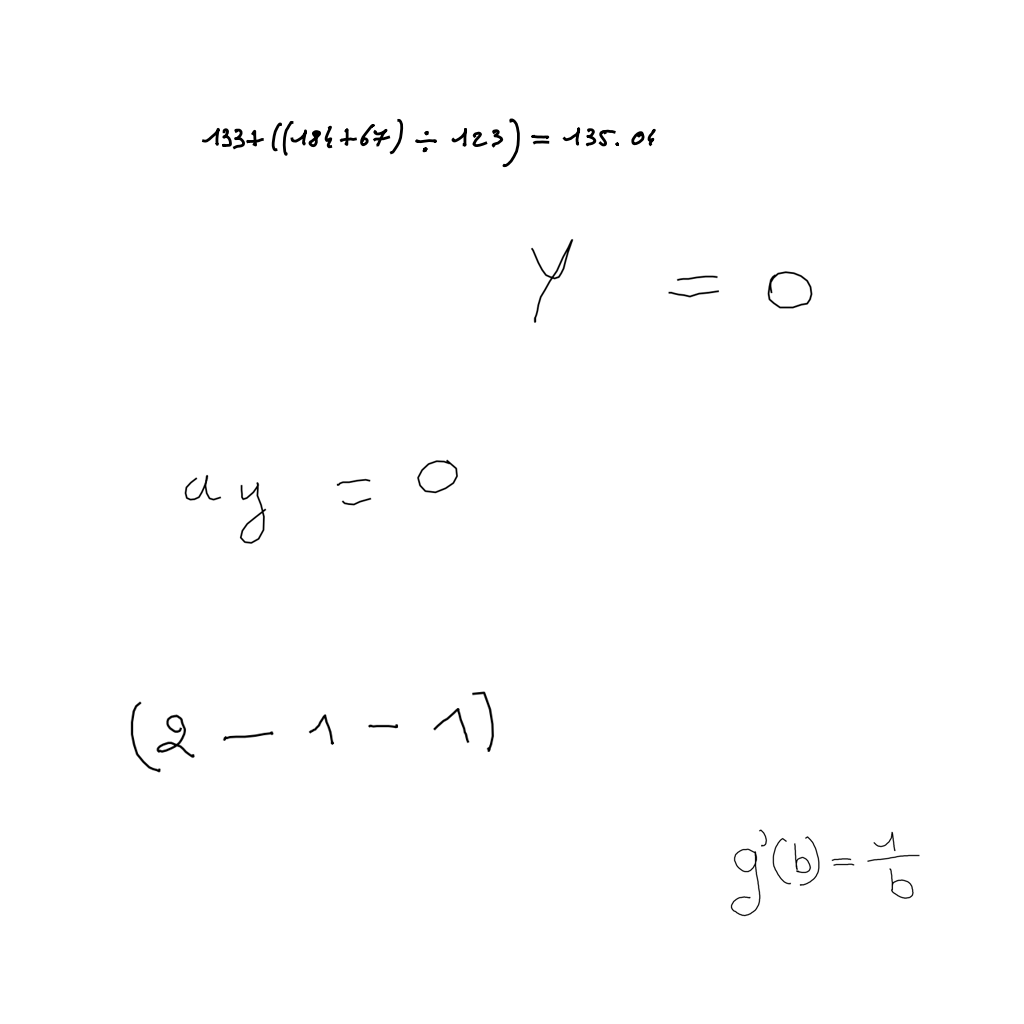 133+((184+67)÷123)=135.04
Y = 0
ay = 0
(2 - 1 - 1)
g'(b) = \frac{1}{b}